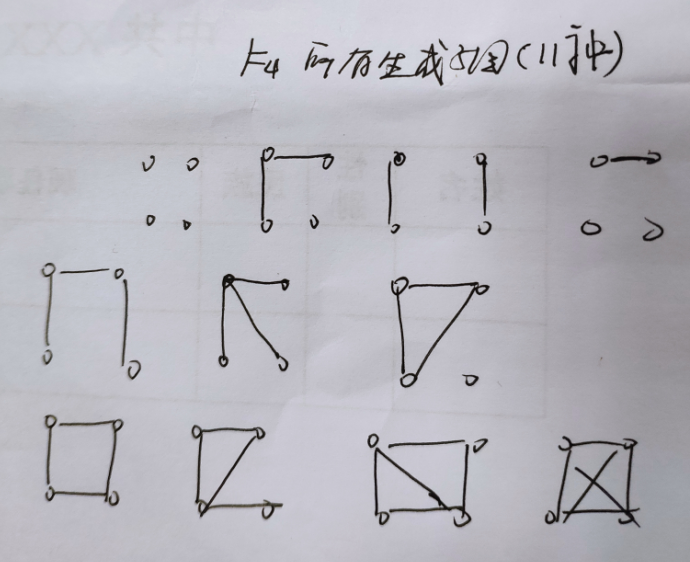 K₄ 所有生成子图(11种)